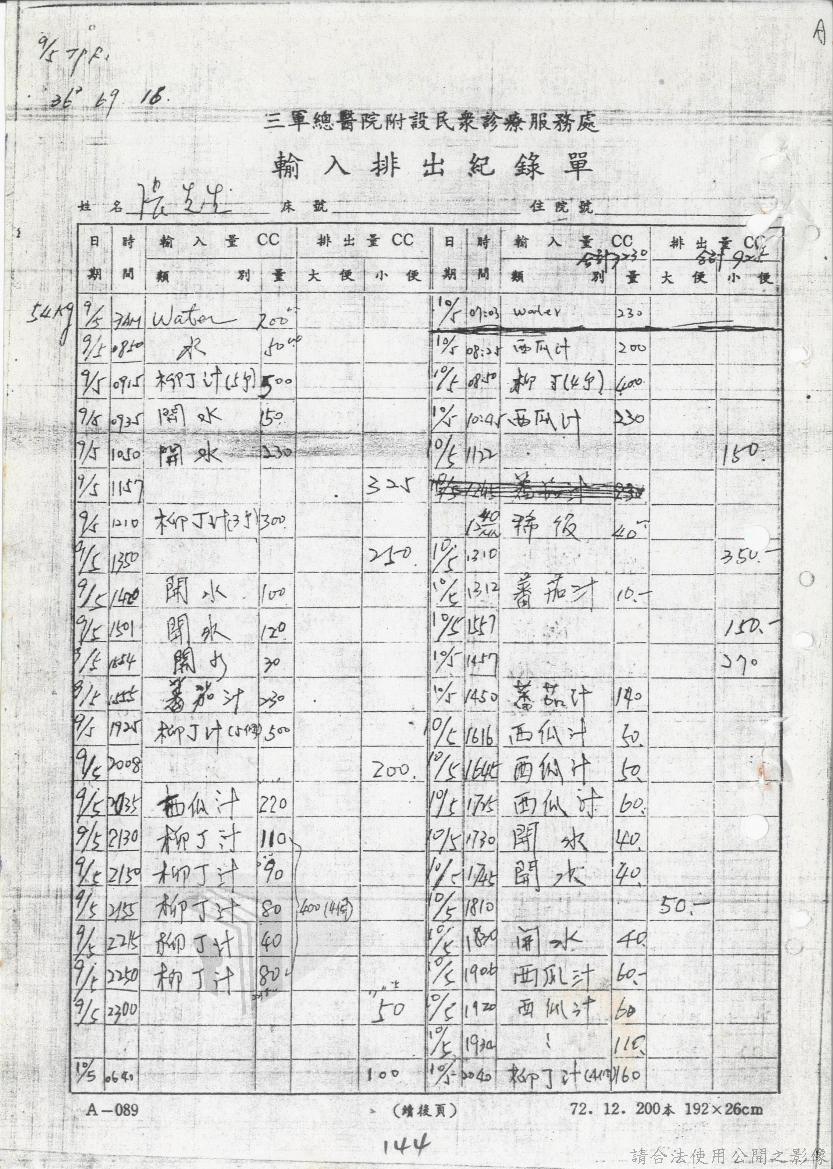 A
9/5 T.P.R.
36° 69. 18.
三軍總醫院附設民衆診療服務處
輸入排出紀錄單
姓名 張先生 床號 住院號
日期 時間 輸入量CC 類別 量 排出量CC 大便 小便 日期 時間 輸入量CC 類別 量 排出量CC 大便 小便
合計3230 合計925
54kg 9/5 7AM Water 200 10/5 07:03 water 230
9/5 0850 水 50 10/5 08:25 西瓜汁 200
9/5 0915 柳丁汁(5個) 500 10/5 08:50 柳丁(4個) 400
9/5 0935 開水 150 10/5 10:45 西瓜汁 230
9/5 1050 開水 230 10/5 1132 150.
9/5 1157 325
9/5 1210 柳丁汁(3個) 300. 1240 稀飯 40
9/5 1350 250. 10/5 1310 350.-
9/5 1420 開水 100 10/5 1312 蕃茄汁 10.-
9/5 1501 開水 120. 10/5 1557 150.-
9/5 開水 30 10/5 1457 270
9/5 1555 蕃茄汁 230 10/5 1450 蕃茄汁 140
9/5 1925 柳丁汁(5個) 500 10/5 1616 西瓜汁 50.
9/5 2008 200. 10/5 1645 西瓜汁 50.
9/5 2035 西瓜汁 220 10/5 1725 西瓜汁 60.
9/5 2130 柳丁汁 110 10/5 1730 開水 40.
9/5 2150 柳丁汁 90 10/5 1745 開水 40.
9/5 2155 柳丁汁 80 400(4個) 10/5 1810 50.-
9/5 2215 柳丁汁 40 10/5 1830 開水 40
9/5 2250 柳丁汁 80 10/5 1906 西瓜汁 60.-
9/5 2300 50 10/5 1920 西瓜汁 60
10/5 1930 110.
10/5 0640 100 10/5 2040 柳丁汁(4個) 160
A-089 (續後頁) 72.12.200本 192×26cm
144
請合法使用公開之影像